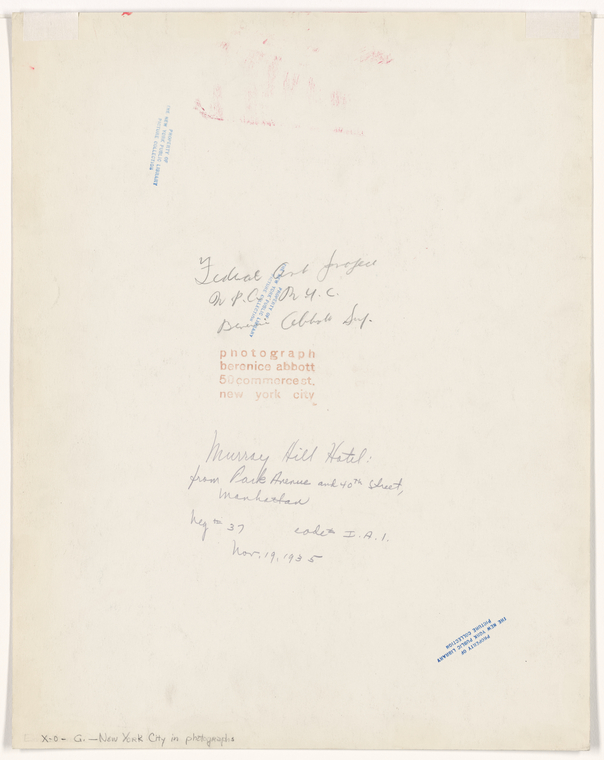 PROPERTY OF
THE NEW YORK PUBLIC LIBRARY
PICTURE COLLECTION
Federal Art Project
W.P.A. N.Y.C.
PROPERTY OF
NEW YORK PUBLIC LIBRARY
PICTURE COLLECTION
Berenice Abbott Sup.
photograph
berenice abbott
50 commerce st.
new york city
Murray Hill Hotel:
from Park Avenue and 40th Street,
Manhattan
Neg # 37 code # I.A.1.
Nov. 19, 1935
PROPERTY OF
THE NEW YORK PUBLIC LIBRARY
PICTURE COLLECTION
X-O- G. — New York City in photographs